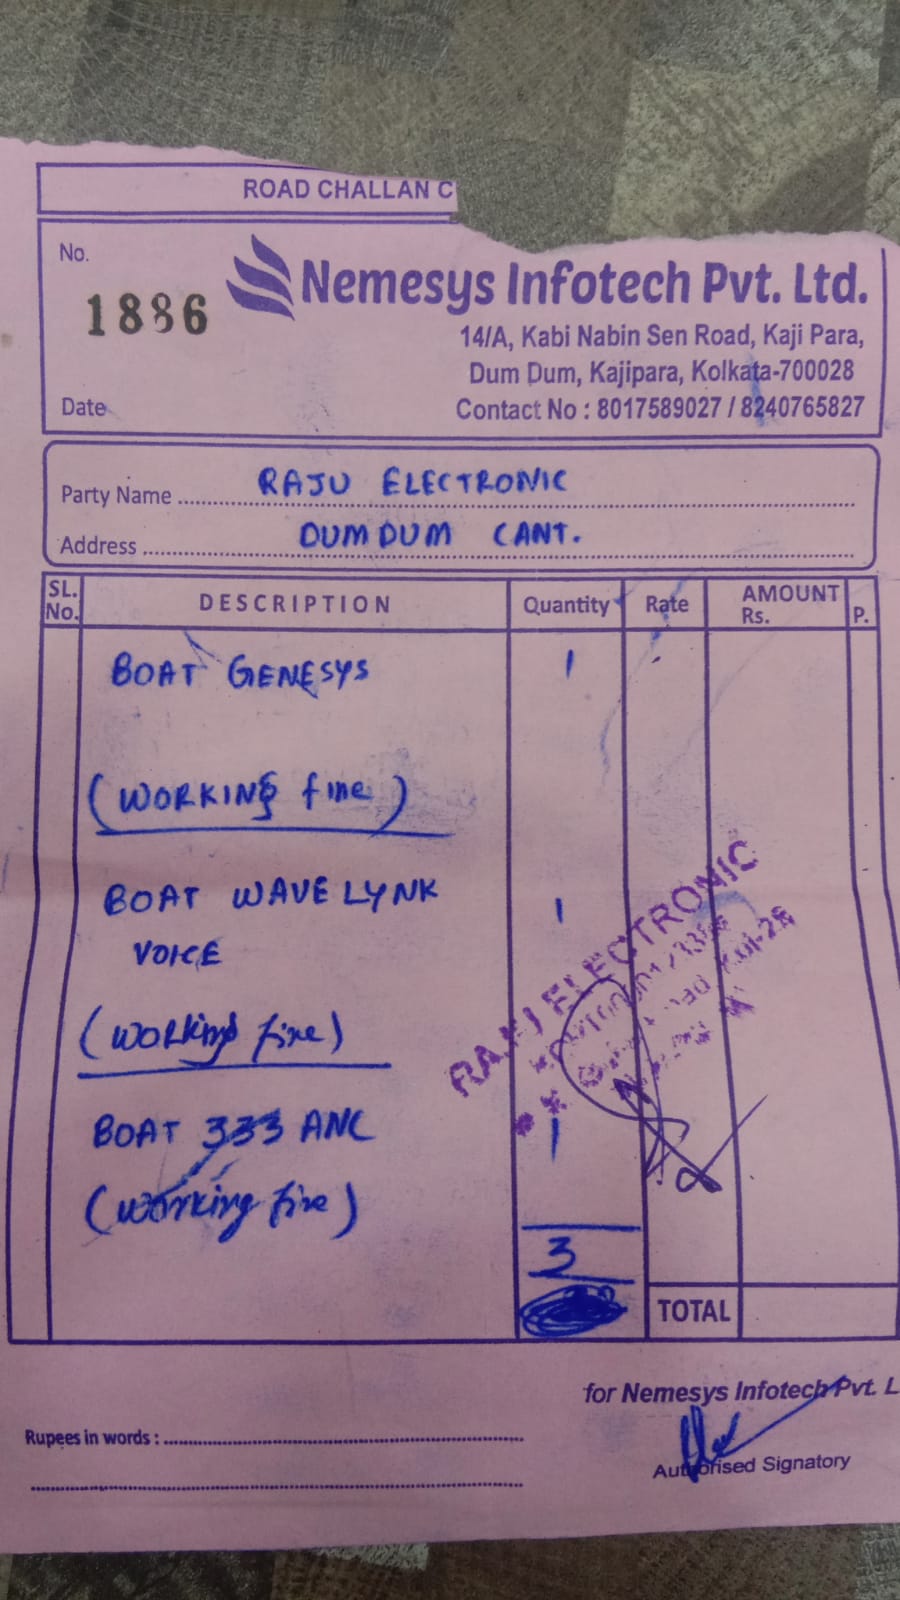 ROAD CHALLAN C
No.
1886
Nemesys Infotech Pvt. Ltd.
14/A, Kabi Nabin Sen Road, Kaji Para,
Dum Dum, Kajipara, Kolkata-700028
Date
Contact No : 8017589027 / 8240765827
Party Name RAJU ELECTRONIC
Address DUMDUM CANT.
SL. No. DESCRIPTION Quantity Rate AMOUNT Rs. P.
BOAT GENESYS 1
(WORKING fine)
BOAT WAVE LYNK 1
VOICE
(Working fine)
RAJU ELECTRONIC
BOAT 333 ANC 1
(Working fine)
3
TOTAL
for Nemesys Infotech Pvt. L
Rupees in words :
Authorised Signatory